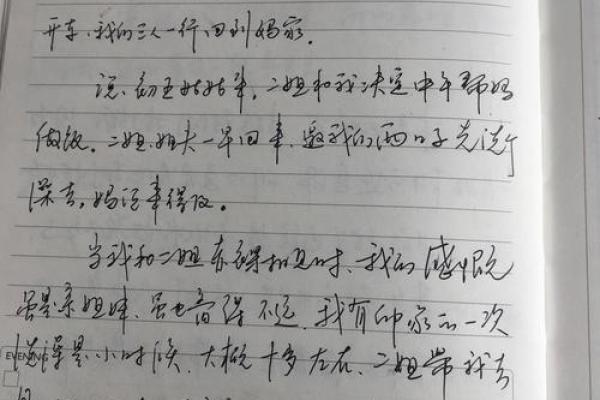 开车,我们三人一行回到妈家。
说,初五姑姑来,二姐和我决定中午帮妈
做饭。二姐、姐夫一早回来,邀我们两口子先洗个
澡去,妈说来得及。
当我和二姐赤裸相见时,我们感慨
虽是亲姐妹,虽也离得不远,我有印象的一次
洗澡是小时候,大概十多左右,二姐带我去
EVENING